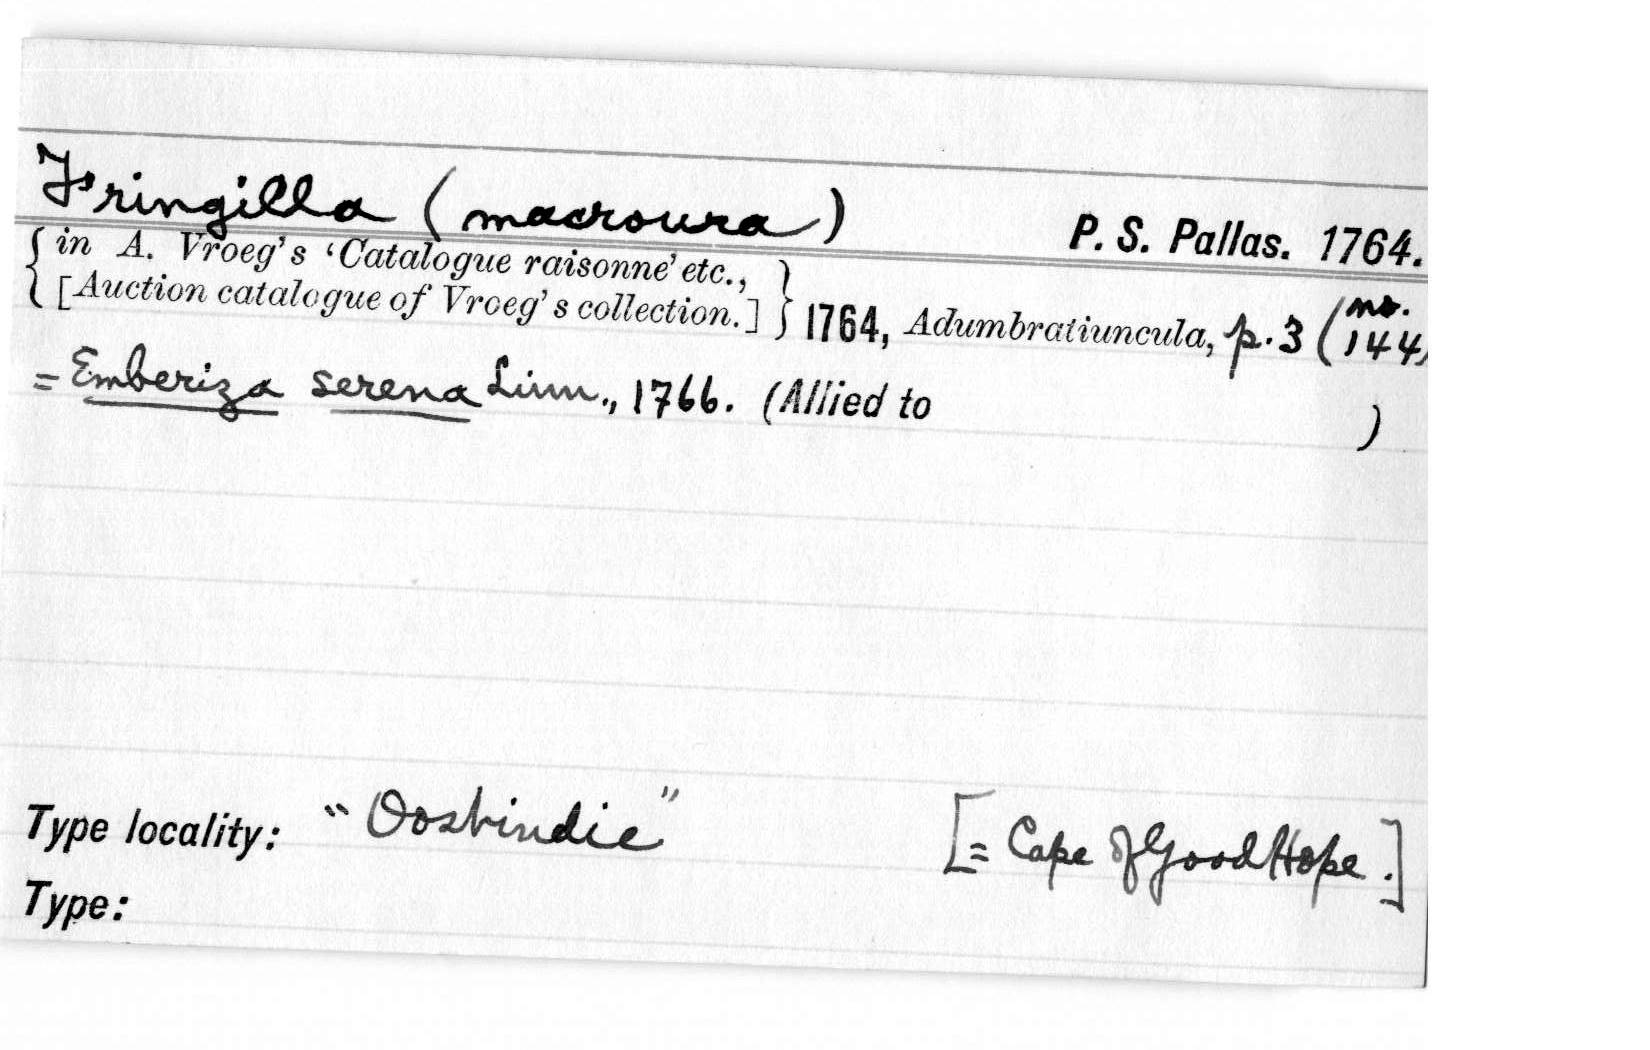 Fringilla (macroura) P. S. Pallas. 1764.
{in A. Vroeg's 'Catalogue raisonne' etc.,
{[Auction catalogue of Vroeg's collection.]} 1764, Adumbratiuncula, p. 3 (no. 144)
= Emberiza serena Linn., 1766. (Allied to )
Type locality: "Oostindie" [= Cape of Good Hope.]
Type: